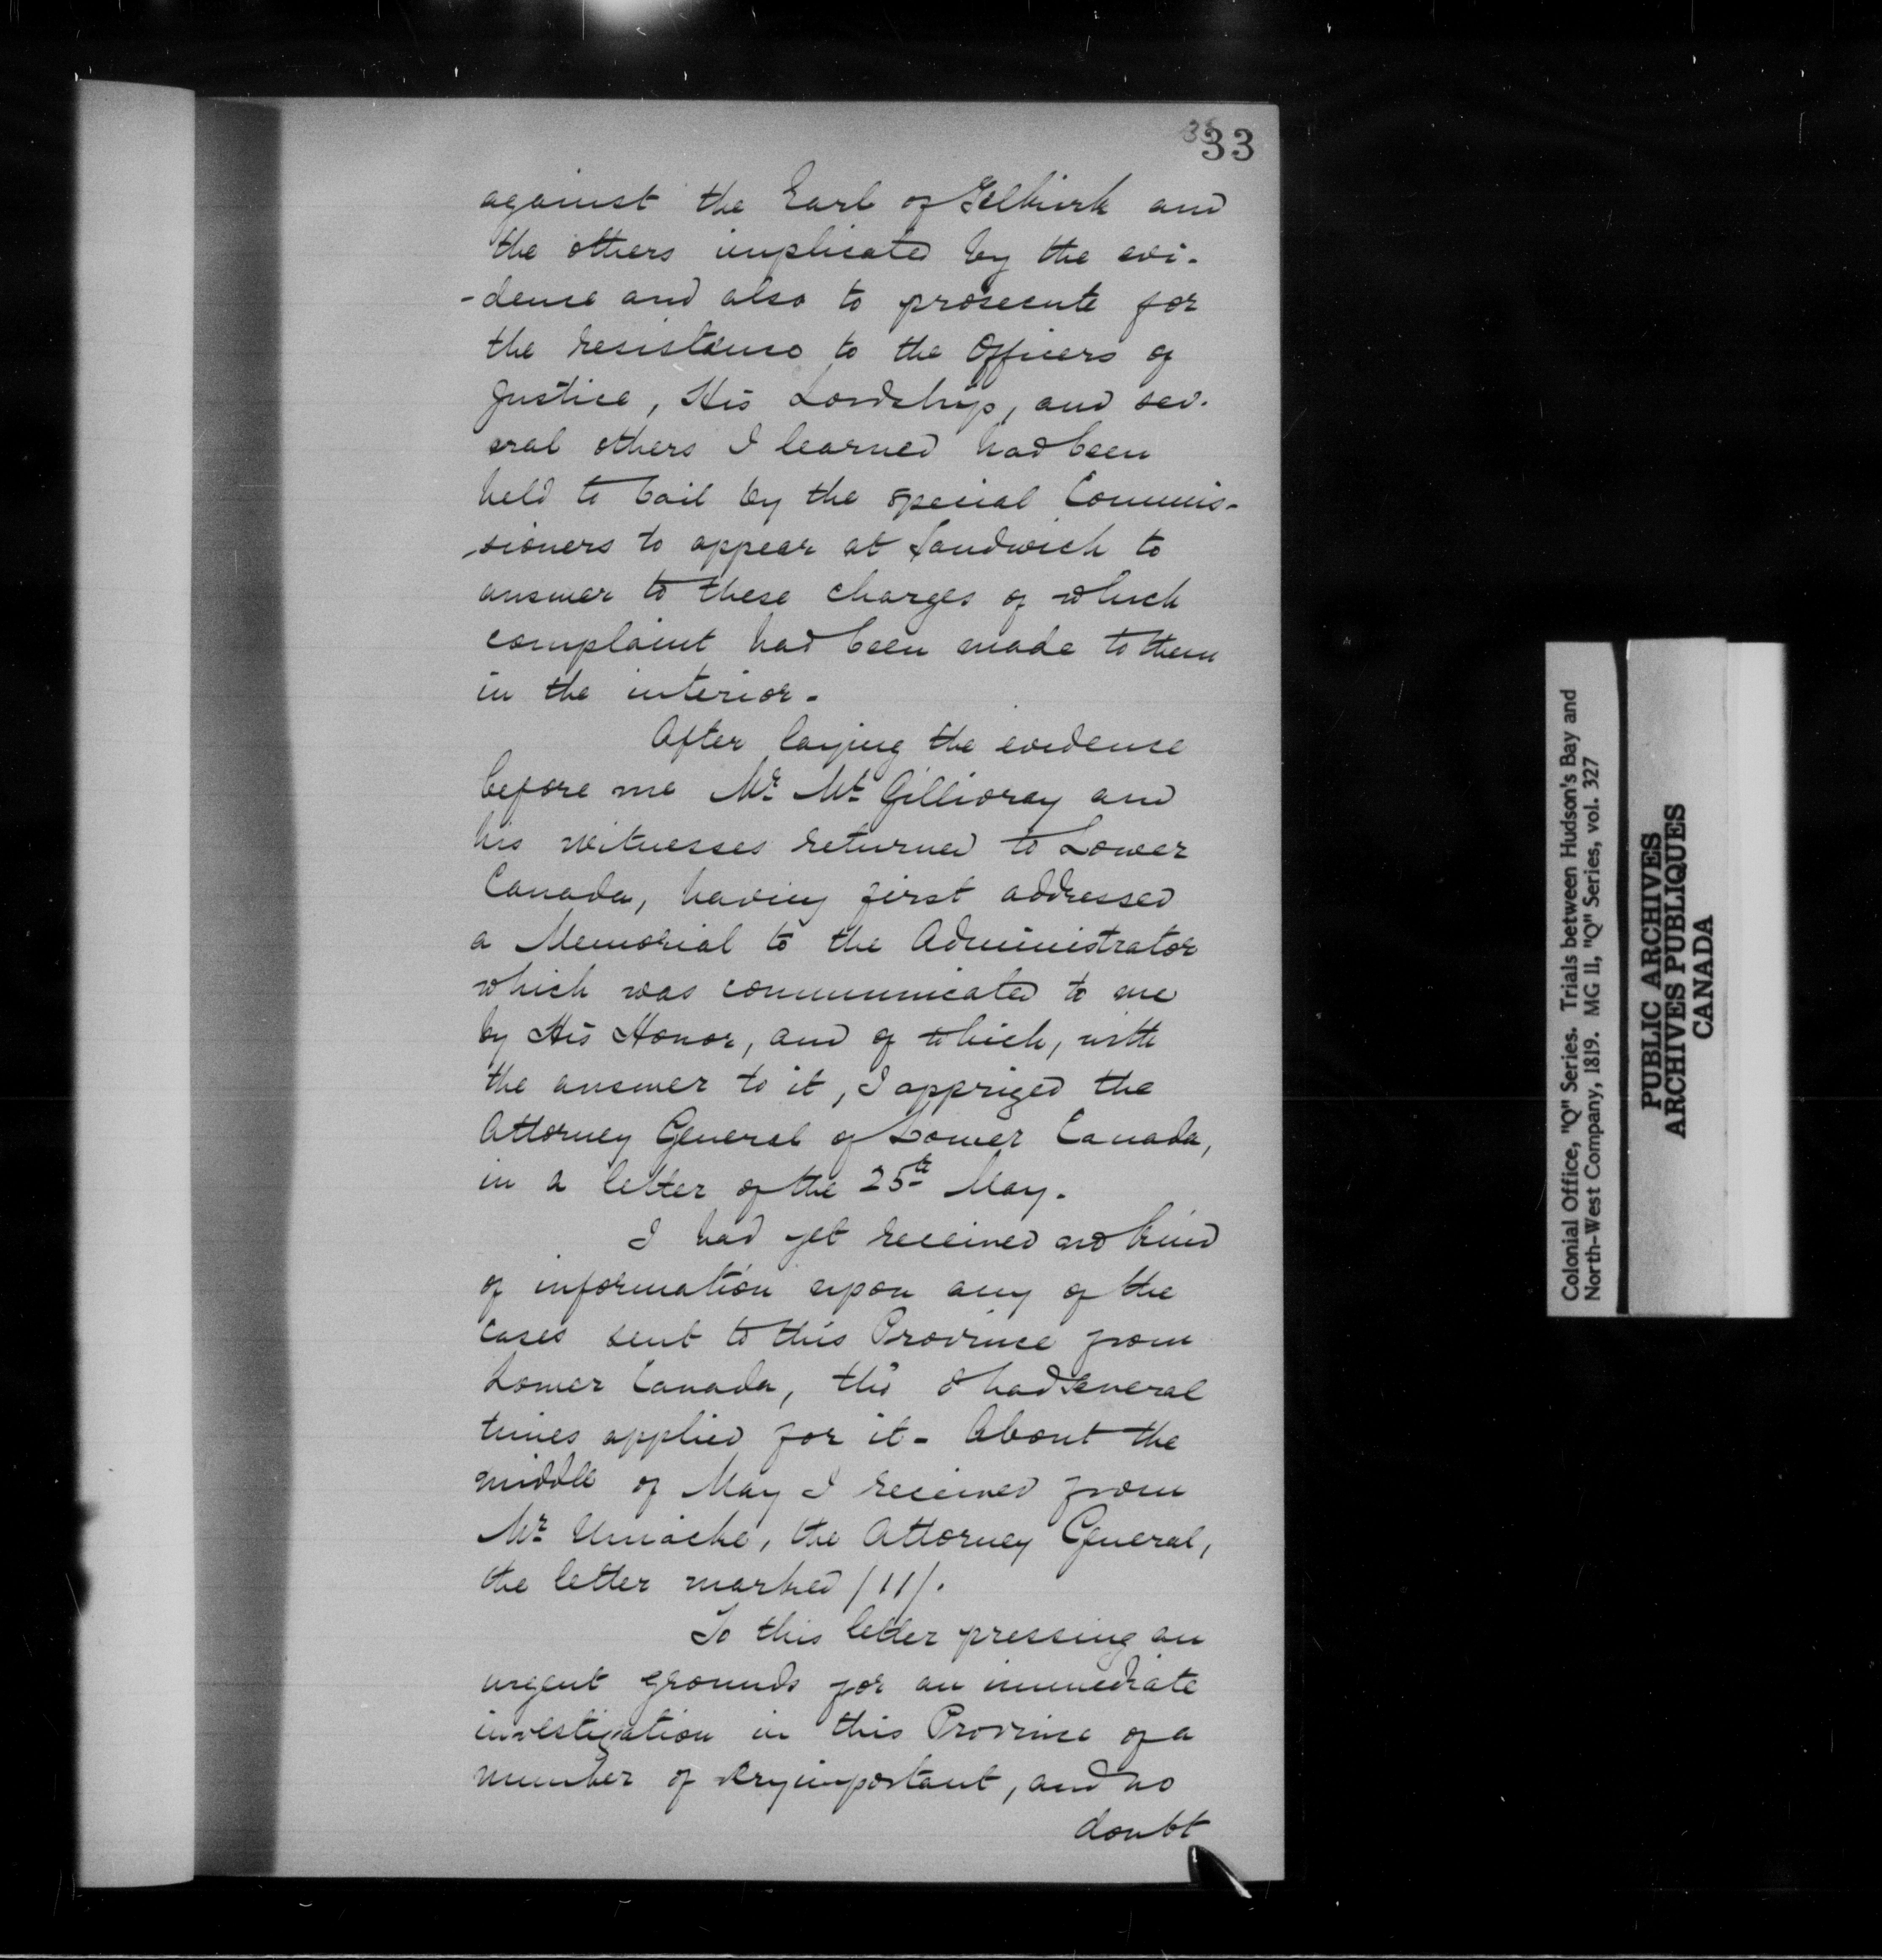 33
against the Earl of Selkirk and
the others implicated by the evi-
-dence and also to prosecute for
the resistance to the Officers of
Justice, His Lordship, and sev-
eral others I learned had been
held to bail by the special Commis-
-sioners to appear at Sandwich to
answer to these charges of which
complaint had been made to them
in the interior.
After laying the evidence
before me Mr. Mc Gillivray and
his witnesses returned to Lower
Canada, having first addressed
a Memorial to the Administrator
which was communicated to me
by His Honor, and of which, with
the answer to it, I apprized the
Attorney General of Lower Canada,
in a letter of the 25th May.
I had yet received no kind
of information upon any of the
cases sent to this Province from
Lower Canada, tho' I had several
times applied for it - About the
middle of May I received from
Mr. Uniacke, the Attorney General,
the letter marked /11/.
To this letter pressing on
urgent grounds for an immediate
investigation in this Province of a
number of very important, and no
doubt
Colonial Office, "Q" Series. Trials between Hudson's Bay and
North-West Company, 1819. MG 11, "Q" Series, vol. 327
PUBLIC ARCHIVES
ARCHIVES PUBLIQUES
CANADA